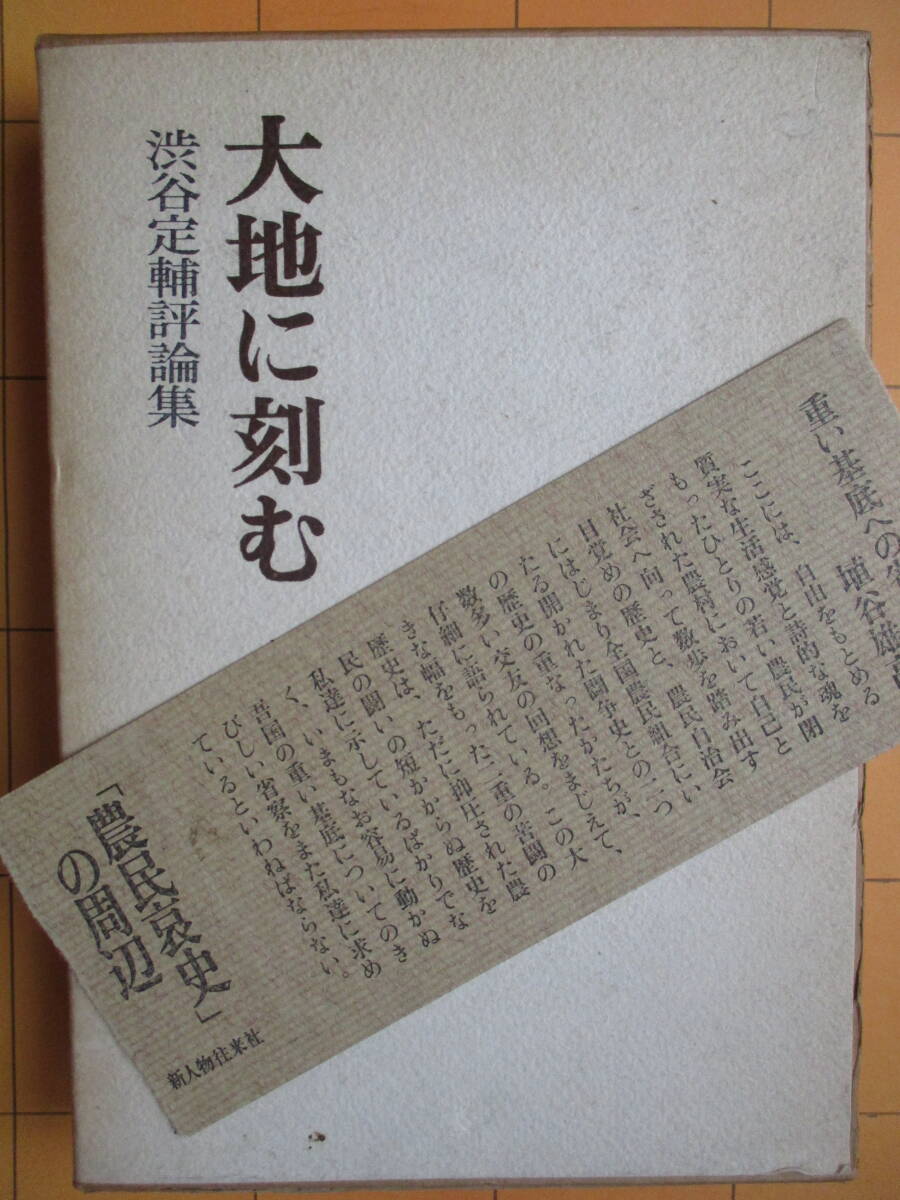 大地に刻む
渋谷定輔評論集
重い基底への省
埴谷雄高
ここには、自由をもとめる
質実な生活感覚と詩的な魂を
もったひとりの若い農民が閉
ざされた農村において自己と
社会へ向って数歩を踏み出す
目覚めの歴史と、農民自治会
にはじまり全国農民組合にい
たる開かれた闘争史との二つ
の歴史の重なったかたちが、
数多い交友の回想をまじえて、
仔細に語られている。この大
きな幅をもった二重の苦闘の
歴史は、ただに抑圧された農
民の闘いの短かからぬ歴史を
私達に示しているばかりでな
く、いまもなお容易に動かぬ
吾国の重い基底についてのき
びしい省察をまた私達に求め
ているといわねばならない。
「農民哀史」
の周辺
新人物往来社